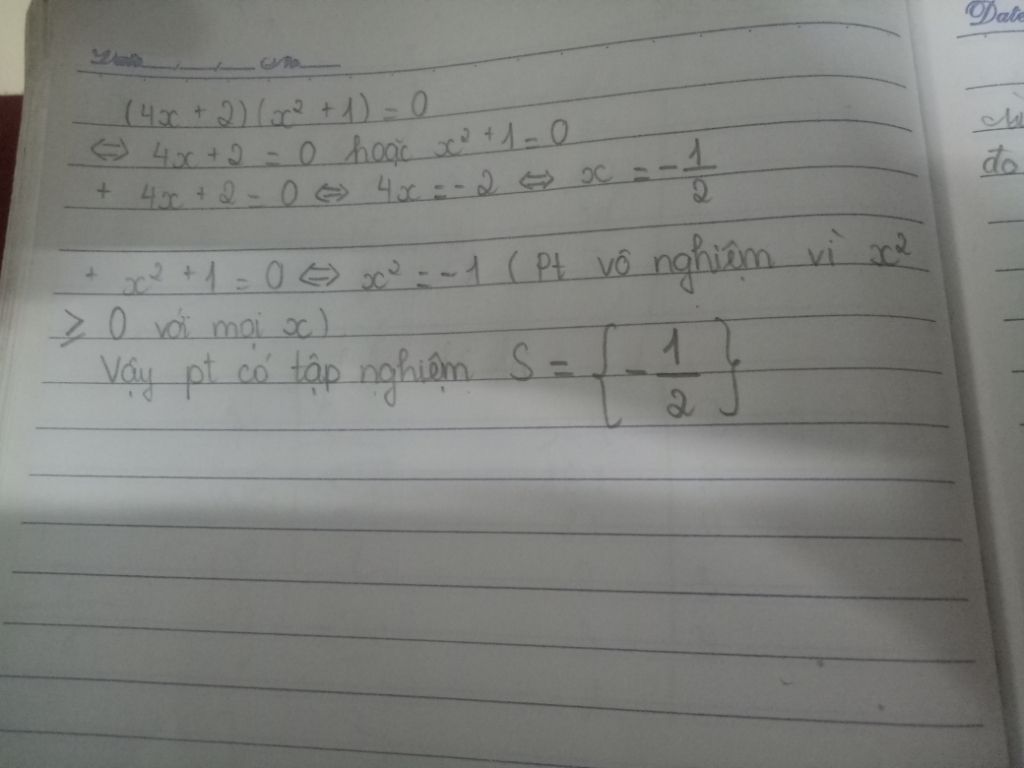 Date No
Date
(4x + 2)(x² + 1) = 0
⇔ 4x + 2 = 0 hoặc x² + 1 = 0
+ 4x + 2 = 0 ⇔ 4x = -2 ⇔ x = -1/2
+ x² + 1 = 0 ⇔ x² = -1 (Pt vô nghiệm vì x²
≥ 0 với mọi x)
Vậy pt có tập nghiệm S = {-1/2}
đo